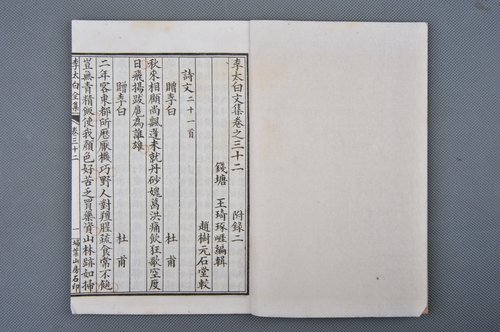 李太白文集卷之三十二　附錄二
錢塘　王琦琢崖編輯
趙樹元石堂較
詩文二十一首
贈李白　杜甫
秋來相顧尚飄蓬未就丹砂媿葛洪痛飲狂歌空度
日飛揚跋扈為誰雄
贈李白　杜甫
二年客東都所歷厭機巧野人對羶腥蔬食常不飽
豈無青精飯使我顏色好苦乏買藥資山林跡如掃
李太白全集　卷三十二　一　埽葉山房石印